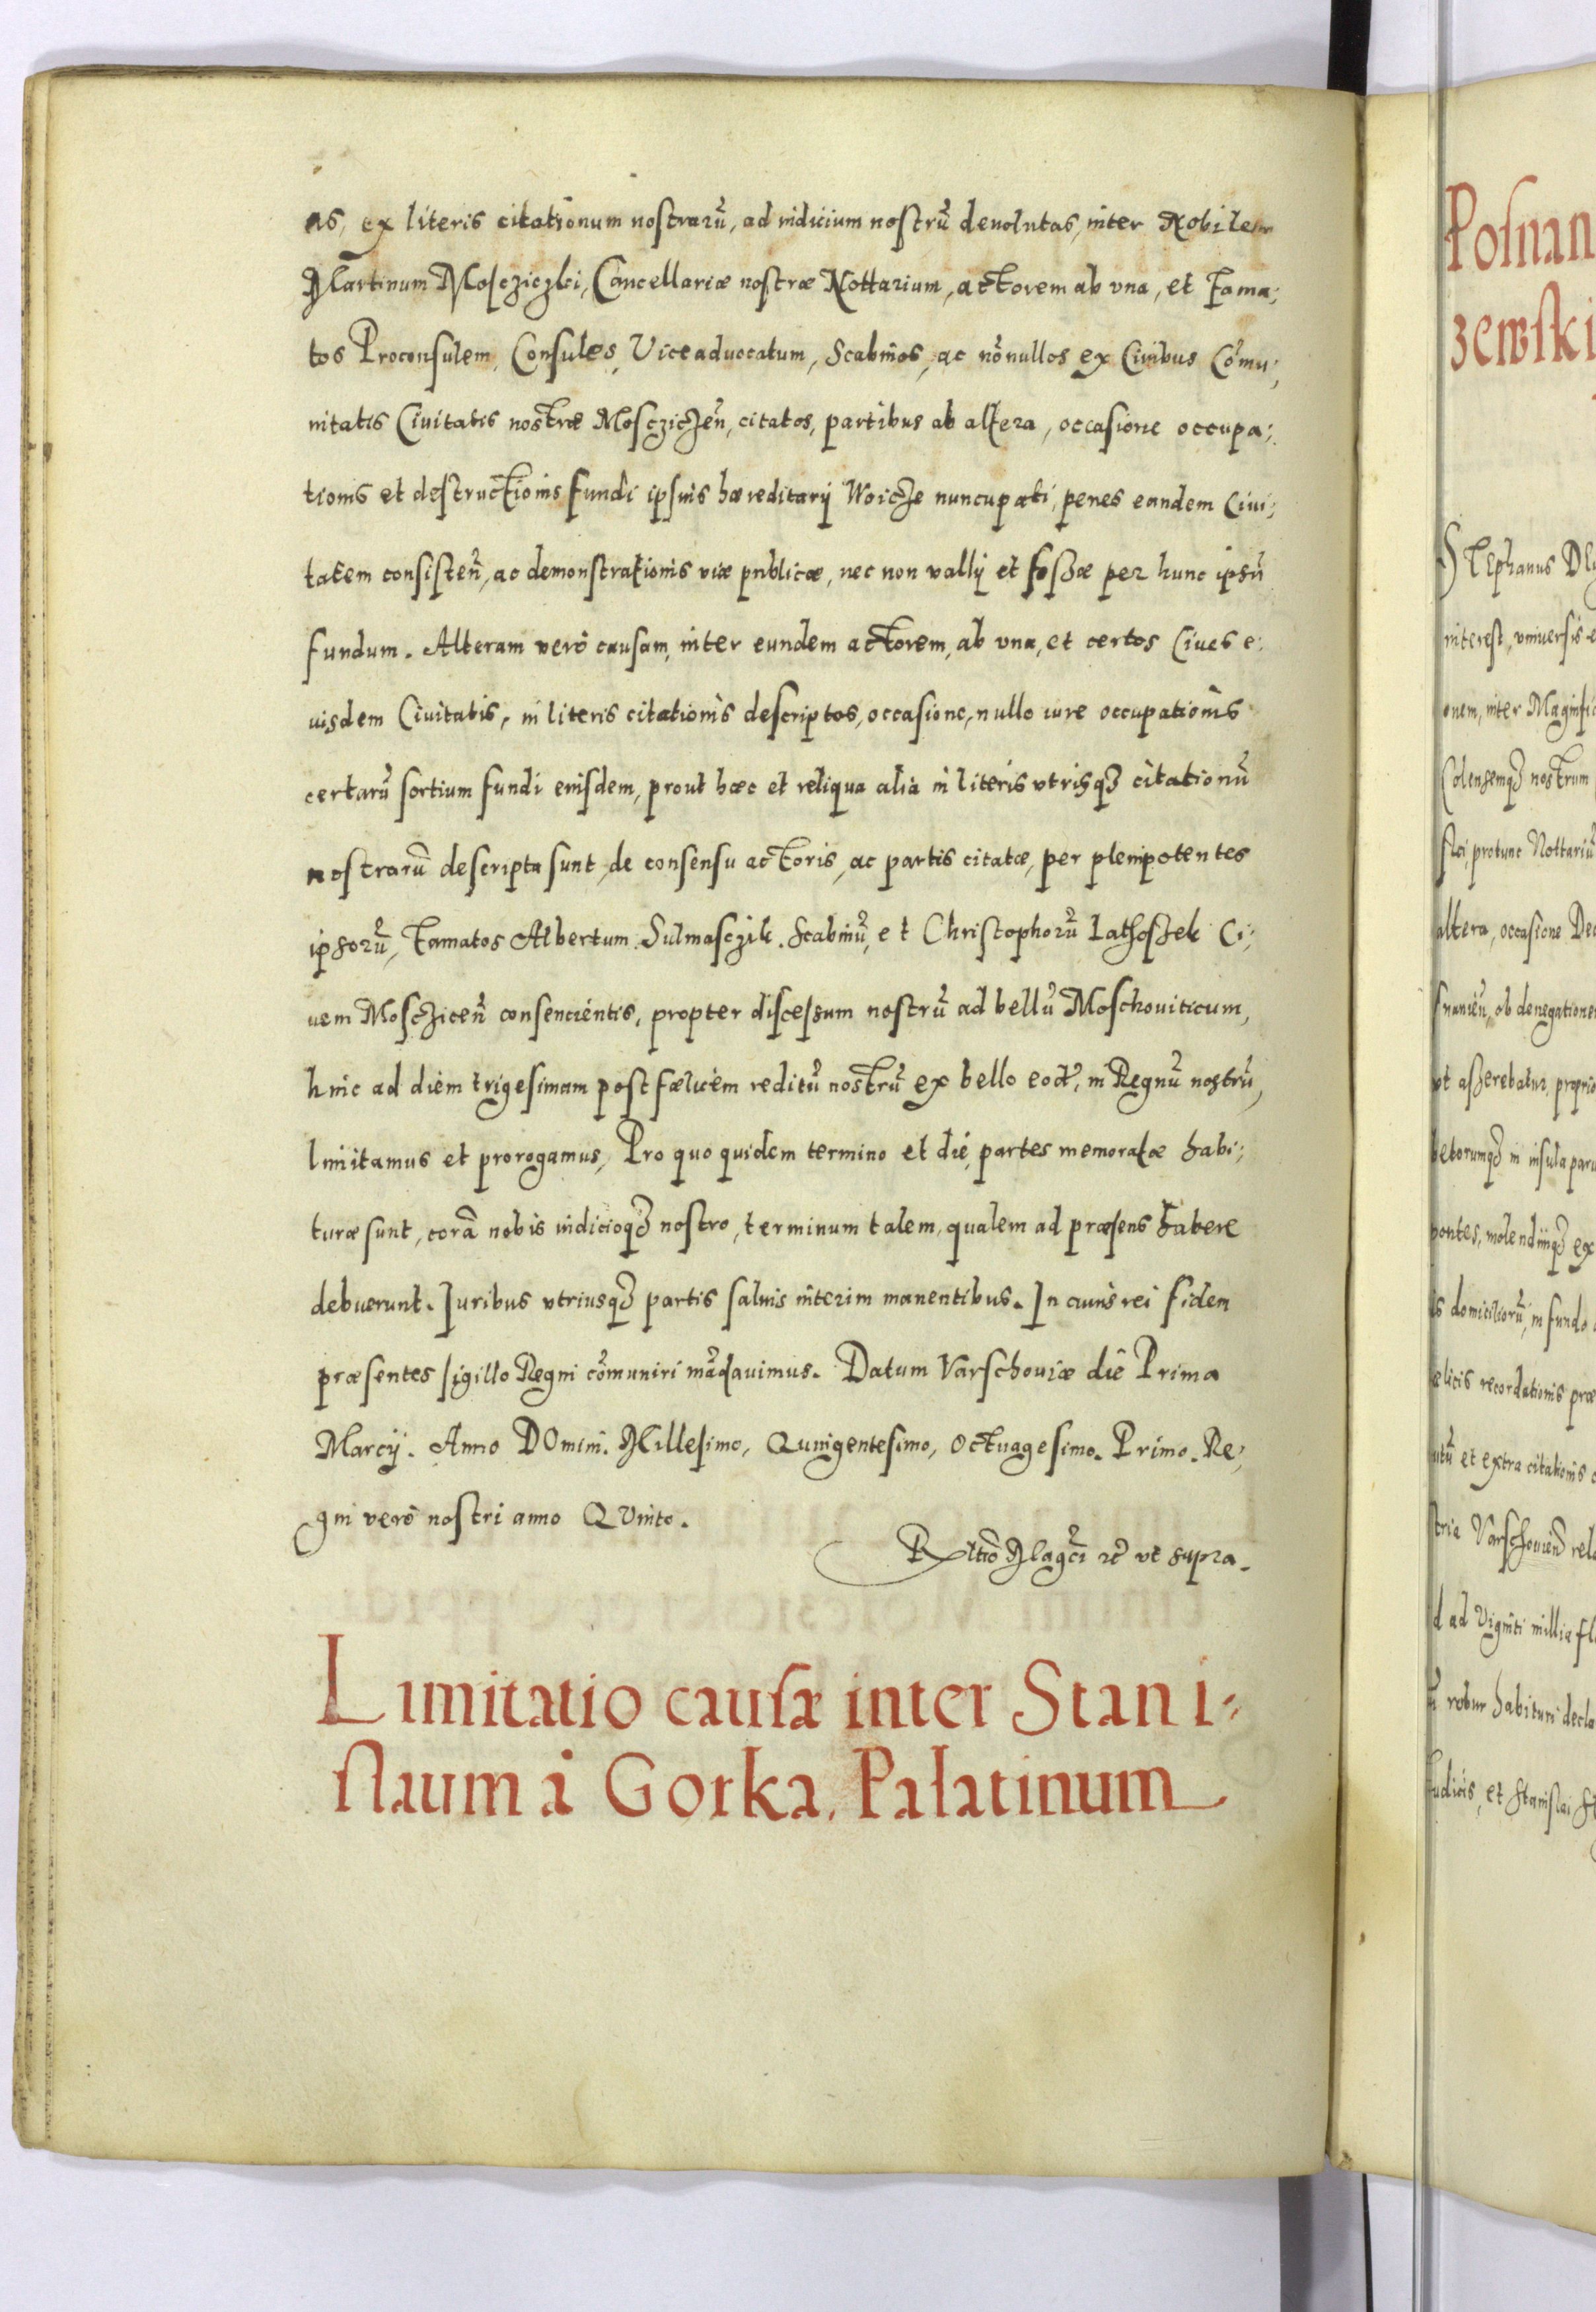 as, ex literis citationum nostrarũ, ad iudicium nostrũ deuolutas, inter Nobilem
Martinum Moscziczki, Cancellariæ nostræ Nottarium, actorem ab vna, et Fama;
tos Proconsulem, Consules, Viceaduocatum, Scabinos, ac nõnullos ex Ciuibus Cõmu;
nitatis Ciuitatis nostræ Mosczicẽn, citatos, partibus ab altera, occasione occupa;
tionis et destructionis fundi ipsius hæreditarij Woicze nuncupati, penes eandem Ciui;
tatem consisteñ, ac demonstrationis viæ publicæ, nec non vallij et fossæ per hunc ipsũ
fundum. Alteram verò causam, inter eundem actorem, ab vna, et certos Ciues e;
iusdem Ciuitatis, in literis citationis descriptos, occasione, nullo iure occupationis
certarũ sortium fundi eiusdem, prout hæc et reliqua alia in literis vtrisqꝫ citationũ
nostrarũ descripta sunt, de consensu actoris, ac partis citatæ, per plenipotentes
ipsorũ, Famatos Albertum Sulmasczik Scabinũ, et Christophorũ Ci;
uem Mosczicen̄ consencientis, propter discessum nostrũ ad bellũ Moschouiticum,
hinc ad diem trigesimam post fælicem reditũ nostrũ ex bello eod̃, in Regnũ nostrũ,
limitamus et prorogamus, Pro quo quidem termino et die, partes memoratæ habi;
turæ sunt, corã nobis iudicioqꝫ nostro, terminum talem, qualem ad præsens habere
debuerunt. Juribus vtriusqꝫ partis saluis interim manentibus. In cuius rei fidem
præsentes sigillo Regni cõmuniri mãdauimus. Datum Varschouiæ die Prima
Marcij. Anno DOmini. Millesimo, Quingentesimo, Octuagesimo. Primo. Re;
gni verò nostri anno QVinto.
Rltiõ Magci ꝛc̃ vt supra.
Limitatio causæ inter Stani-
slaum à Gorka, Palatinum
Posnan
zewski
STephanus
interest, vniuersis
onem, inter Magnific
Colensemqꝫ nostrum
ski, protunc Nottariũ
altera, occasione De
ob denegatione
vt asserebatur, proprio
in insula paru
pontes, molendinqꝫ ex
is domiciliorũ, in fundo
ælicis recordationis præ
et extra citationis
Varschouien̄ rela
d ad Viginti millia fl
robur habituri decla
Judicis, et Stanislai